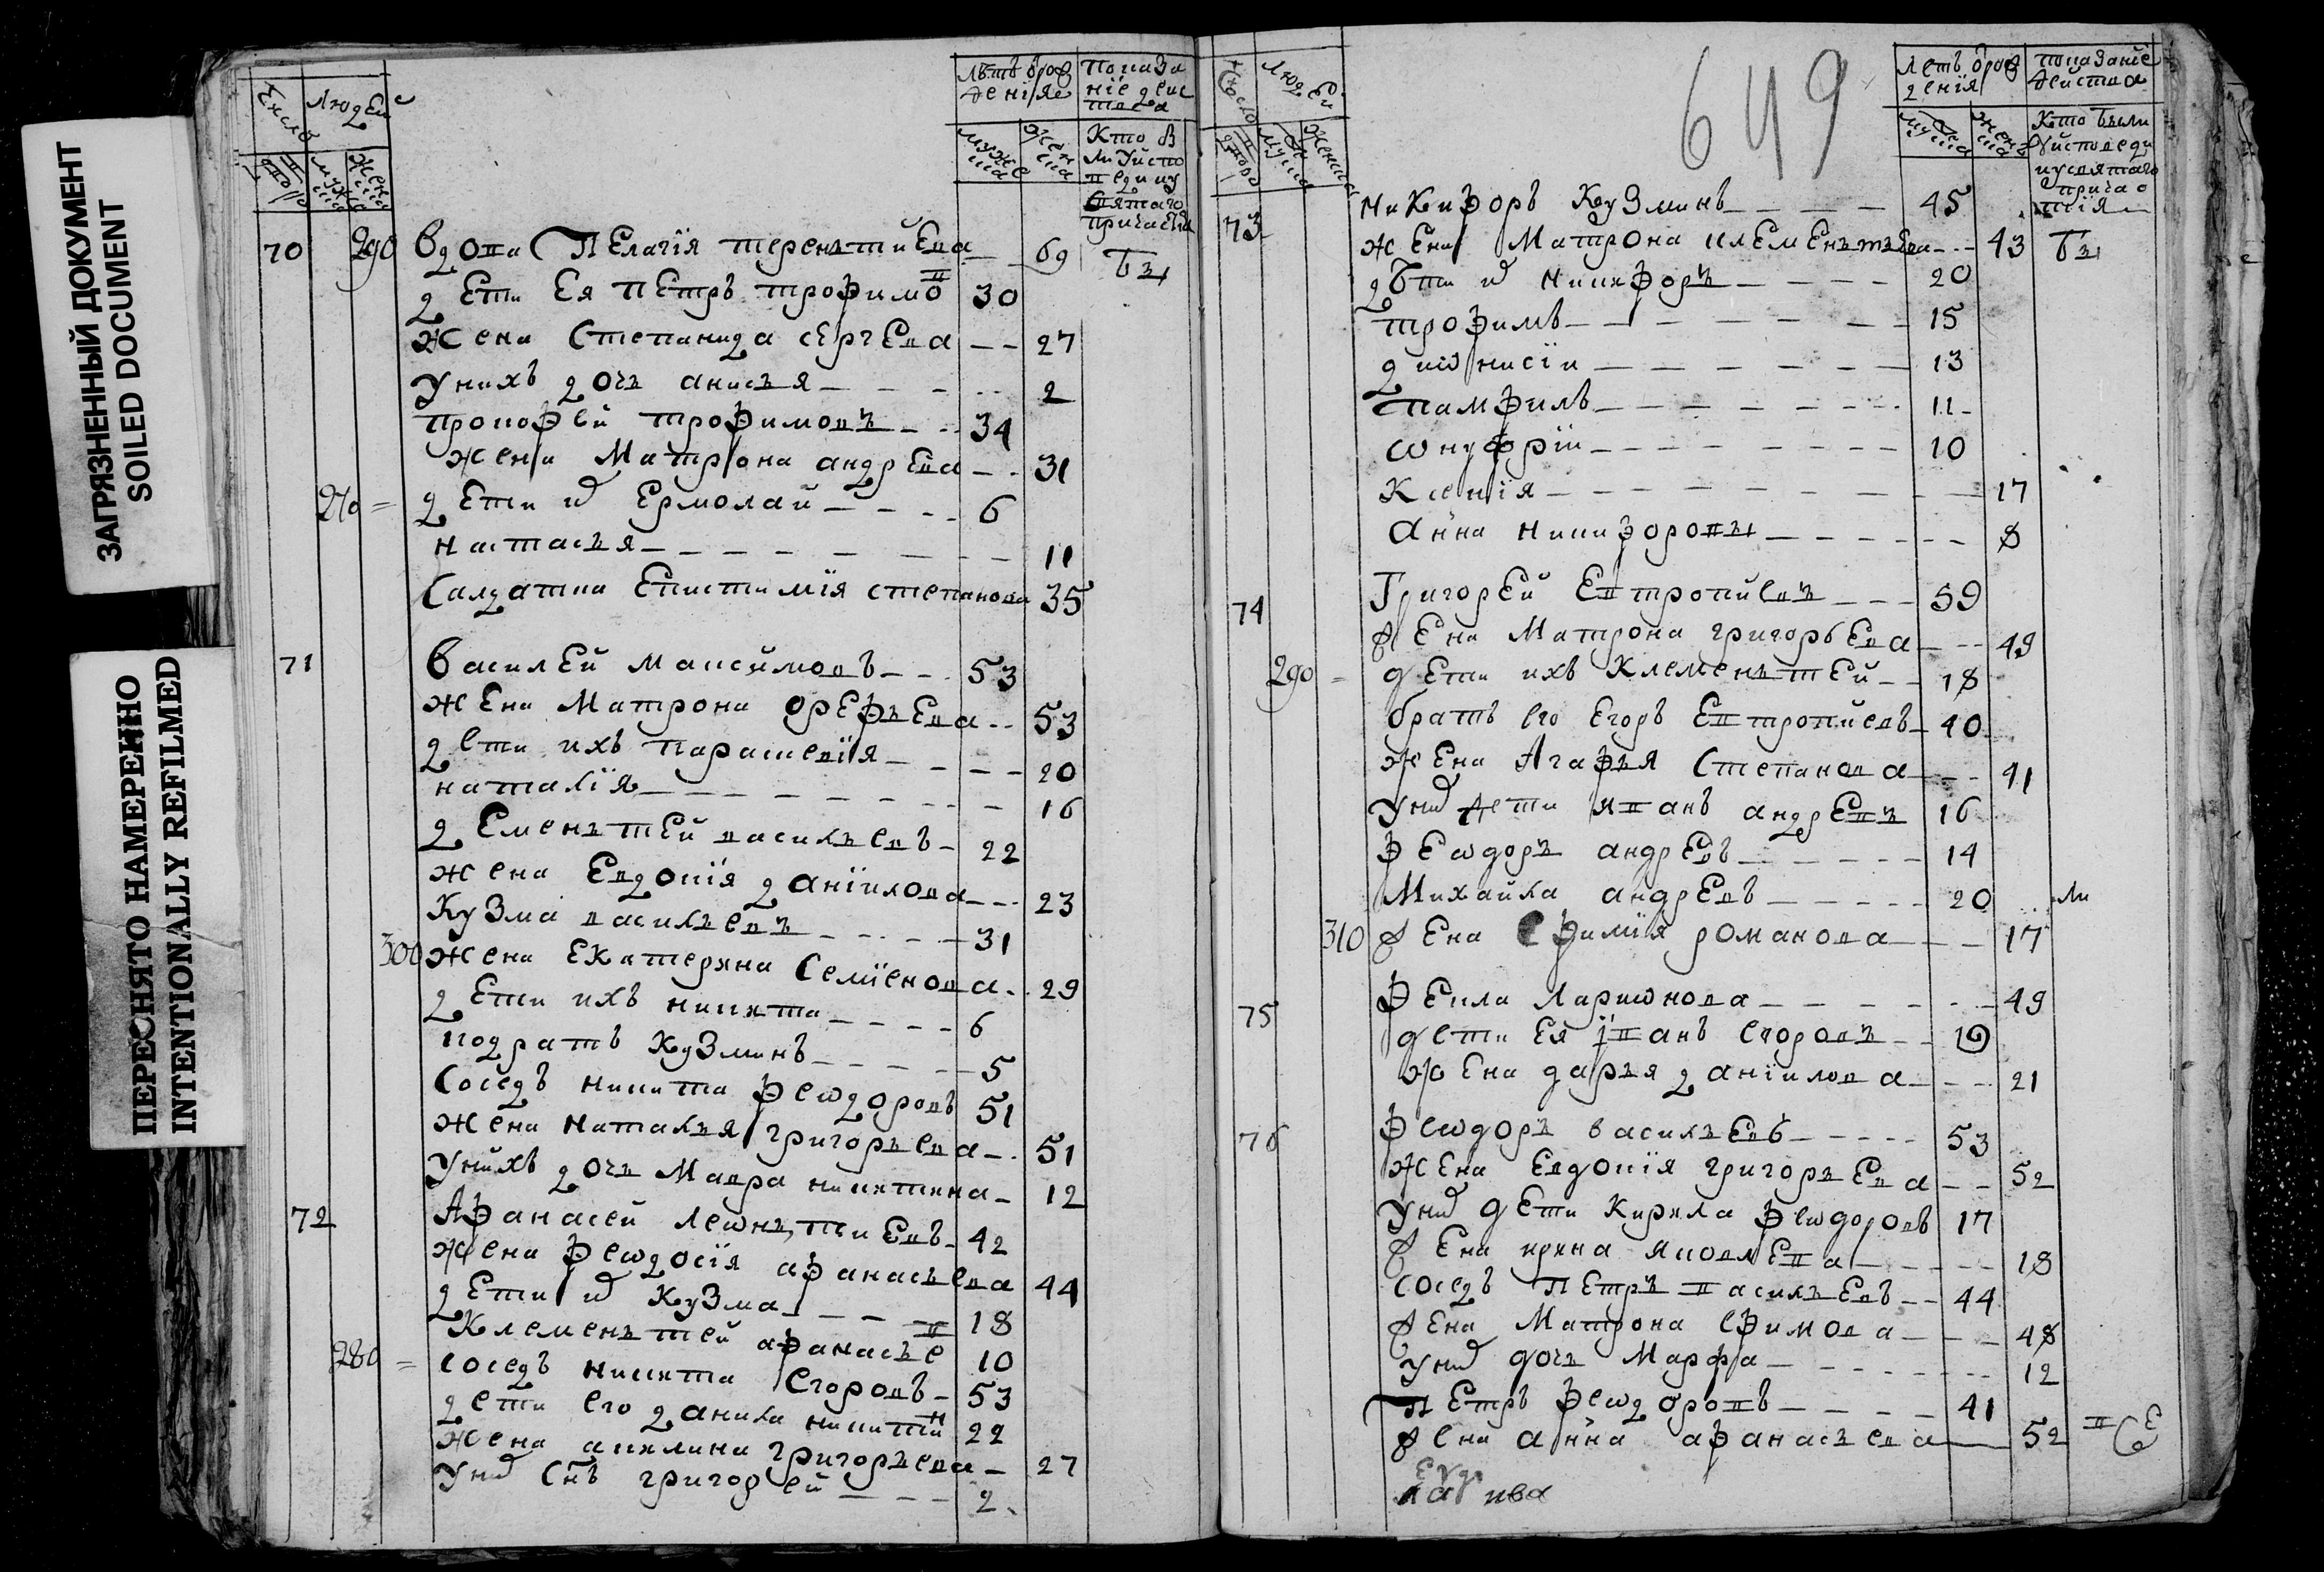 ЗАГРЯЗНЕННЫЙ ДОКУМЕНТ
SOILED DOCUMENT
ПЕРЕСНЯТО НАМЕРЕННО
INTENTIONALLY REFILMED
Число Людей
Лѣтъ отрож
деніяе
показа
ніе дейс
тва
дворо мужеска женска
мужеска женска
Кто б
ли уисто
веди иу
святаго
причастія
70 290 Вдова Пелагія терентиева — 69 бы
дети Ея Петръ трофимо в 30
жена Степанида сергева — — 27
у нихъ дочь анисья — — — 2
прокофеи трофимовъ — — 34
жена Матрона андрева — — 31
270 = дети их Ермолаи — — — 6
настасья — — — — — — 11
Салдатка Епистимія степанова 35
71 Василеи Максимовъ — — 53
жена Матрона орефьева — — 53
дети ихъ парасковія — — — — 20
наталія — — — — — — — 16
дементеи васильевъ — 22
жена Евдокія даніилова — — 23
Кузма васильевъ — — — — 31
300 жена Екатерина Семіенова — 29
дети ихъ никита — — — — 6
кодратъ Кузминъ — — — — 5
Соседъ никита Феѡдоровъ 51
жена наталья григорьева — 51
у нихъ дочь Мавра никитина — 12
72 Афанасеи леѡньтиевъ — 42
жена Феѡдосія афанасьева 44
дети их Кузма — — — — 18
Клементеи афанасье в 10
280 = соседъ никита Егоровъ — 53
дети его данила никити н 22
жена акилина григорьева — 27
у них снъ григореи — — — 2
649
Число Людеи
Летъ отрож
денія
показание
деиства
дворо мужска женска
мужска женска
Кто были
уисповеди
иусвятаго
прича с
тия
73 никифоръ Кузминъ — — — — 45
жена Матрона клементьева — — 43 бы
дѣти их никифоръ — — — — 20
трофимъ — — — — — — 15
диѡнисіи — — — — — — 13
памфилъ — — — — — — 11
ѡнуфріи — — — — — — 10
Ксенія — — — — — — — 17
анна никифоровы — — — — — 8
74 Григореи Евтропиевъ — — — 59
жена Матрона григорьева — — 49
290 = дети ихъ Клементеи — — 18
братъ его Егоръ Евтропиевъ — 40
жена Агафья Степанова — — 41
у них дети иванъ андревъ 16
Феѡдоръ андревъ — — — — 14
Михаила андревъ — — — — 20
310 жена Ефимія романова — — — 17
75 Фекла Лариѡнова — — — — — 49
дети Ея іванъ егоровъ — — 19
жена дарья даніилова — — — 21
76 Феѡдоръ васильевъ — — — — 53
жена Евдокія григорьева — — 52
у них дети Кирила Феѡдоровъ 17
жена ирина яковлева — — — — 18
соседъ Петръ васильевъ — — 44
жена Матрона ефимова — — — 48
у них дочь Марфа — — — — — 12
Петръ Феѡдоровъ — — — — 41
жена анна афанасьева — 52 в се